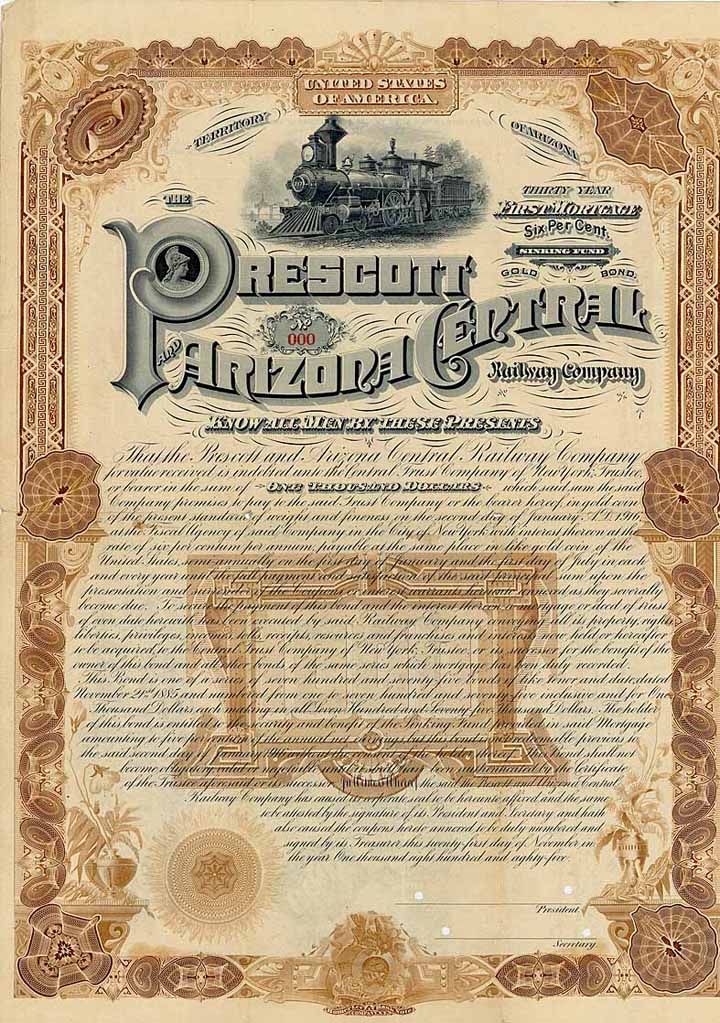 UNITED STATES
OF AMERICA.
TERRITORY
OF ARIZONA
THE
THIRTY YEAR
FIRST MORTGAGE
Six Per Cent.
SINKING FUND
GOLD BOND,
PRESCOTT
No
000
AND ARIZONA CENTRAL
Railway Company
KNOW ALL MEN BY THESE PRESENTS
That the Prescott and Arizona Central Railway Company
for value received is indebted unto the Central Trust Company of New York, Trustee,
or bearer in the sum of ONE THOUSAND DOLLARS which said sum the said
Company promises to pay to the said Trust Company or the bearer hereof, in gold coin
of the present standard of weight and fineness on the second day of January A.D. 1916
at the Fiscal Agency of said Company in the City of New York with interest thereon at the
rate of six per centum per annum, payable at the same place in like gold coin of the
United States, semi annually on the first day of January and the first day of July in each
and every year upon the
presentation as they severally
become due. To secure the payment of this bond and the interest of trust
of even date herewith executed by said Railway Company all its property, rights
liberties, privileges, receipts, resources and franchises held or hereafter
to be acquired, to the Trust Company of New York, Trustee, for the benefit of the
owner of this bond and all other bonds of the same series which mortgage duly recorded.
This Bond is one of a series of seven hundred and seventy five of like tenor and date, dated
November 21st 1885 and numbered from one to seven hundred and seventy five inclusive and for One
Thousand Dollars each making in all Seven Hundred and Seventy five Thousand Dollars. The holder
of this bond is entitled to the security and benefit of the Sinking Fund in said Mortgage
amounting to five
the said second day of shall not
become obligatory, valid or negotiable until it shall have been authenticated by the Certificate
of the Trustee aforesaid or its successor. In Witness Whereof the said the Prescott and Arizona Central
Railway Company has caused its corporate seal to be hereunto affixed and the same
to be attested by the signature of its President and Secretary and hath
also caused the coupons hereto annexed to be duly numbered and
signed by its Treasurer this twenty first day of November in
the year One thousand eight hundred and eighty-five.
President.
Secretary.